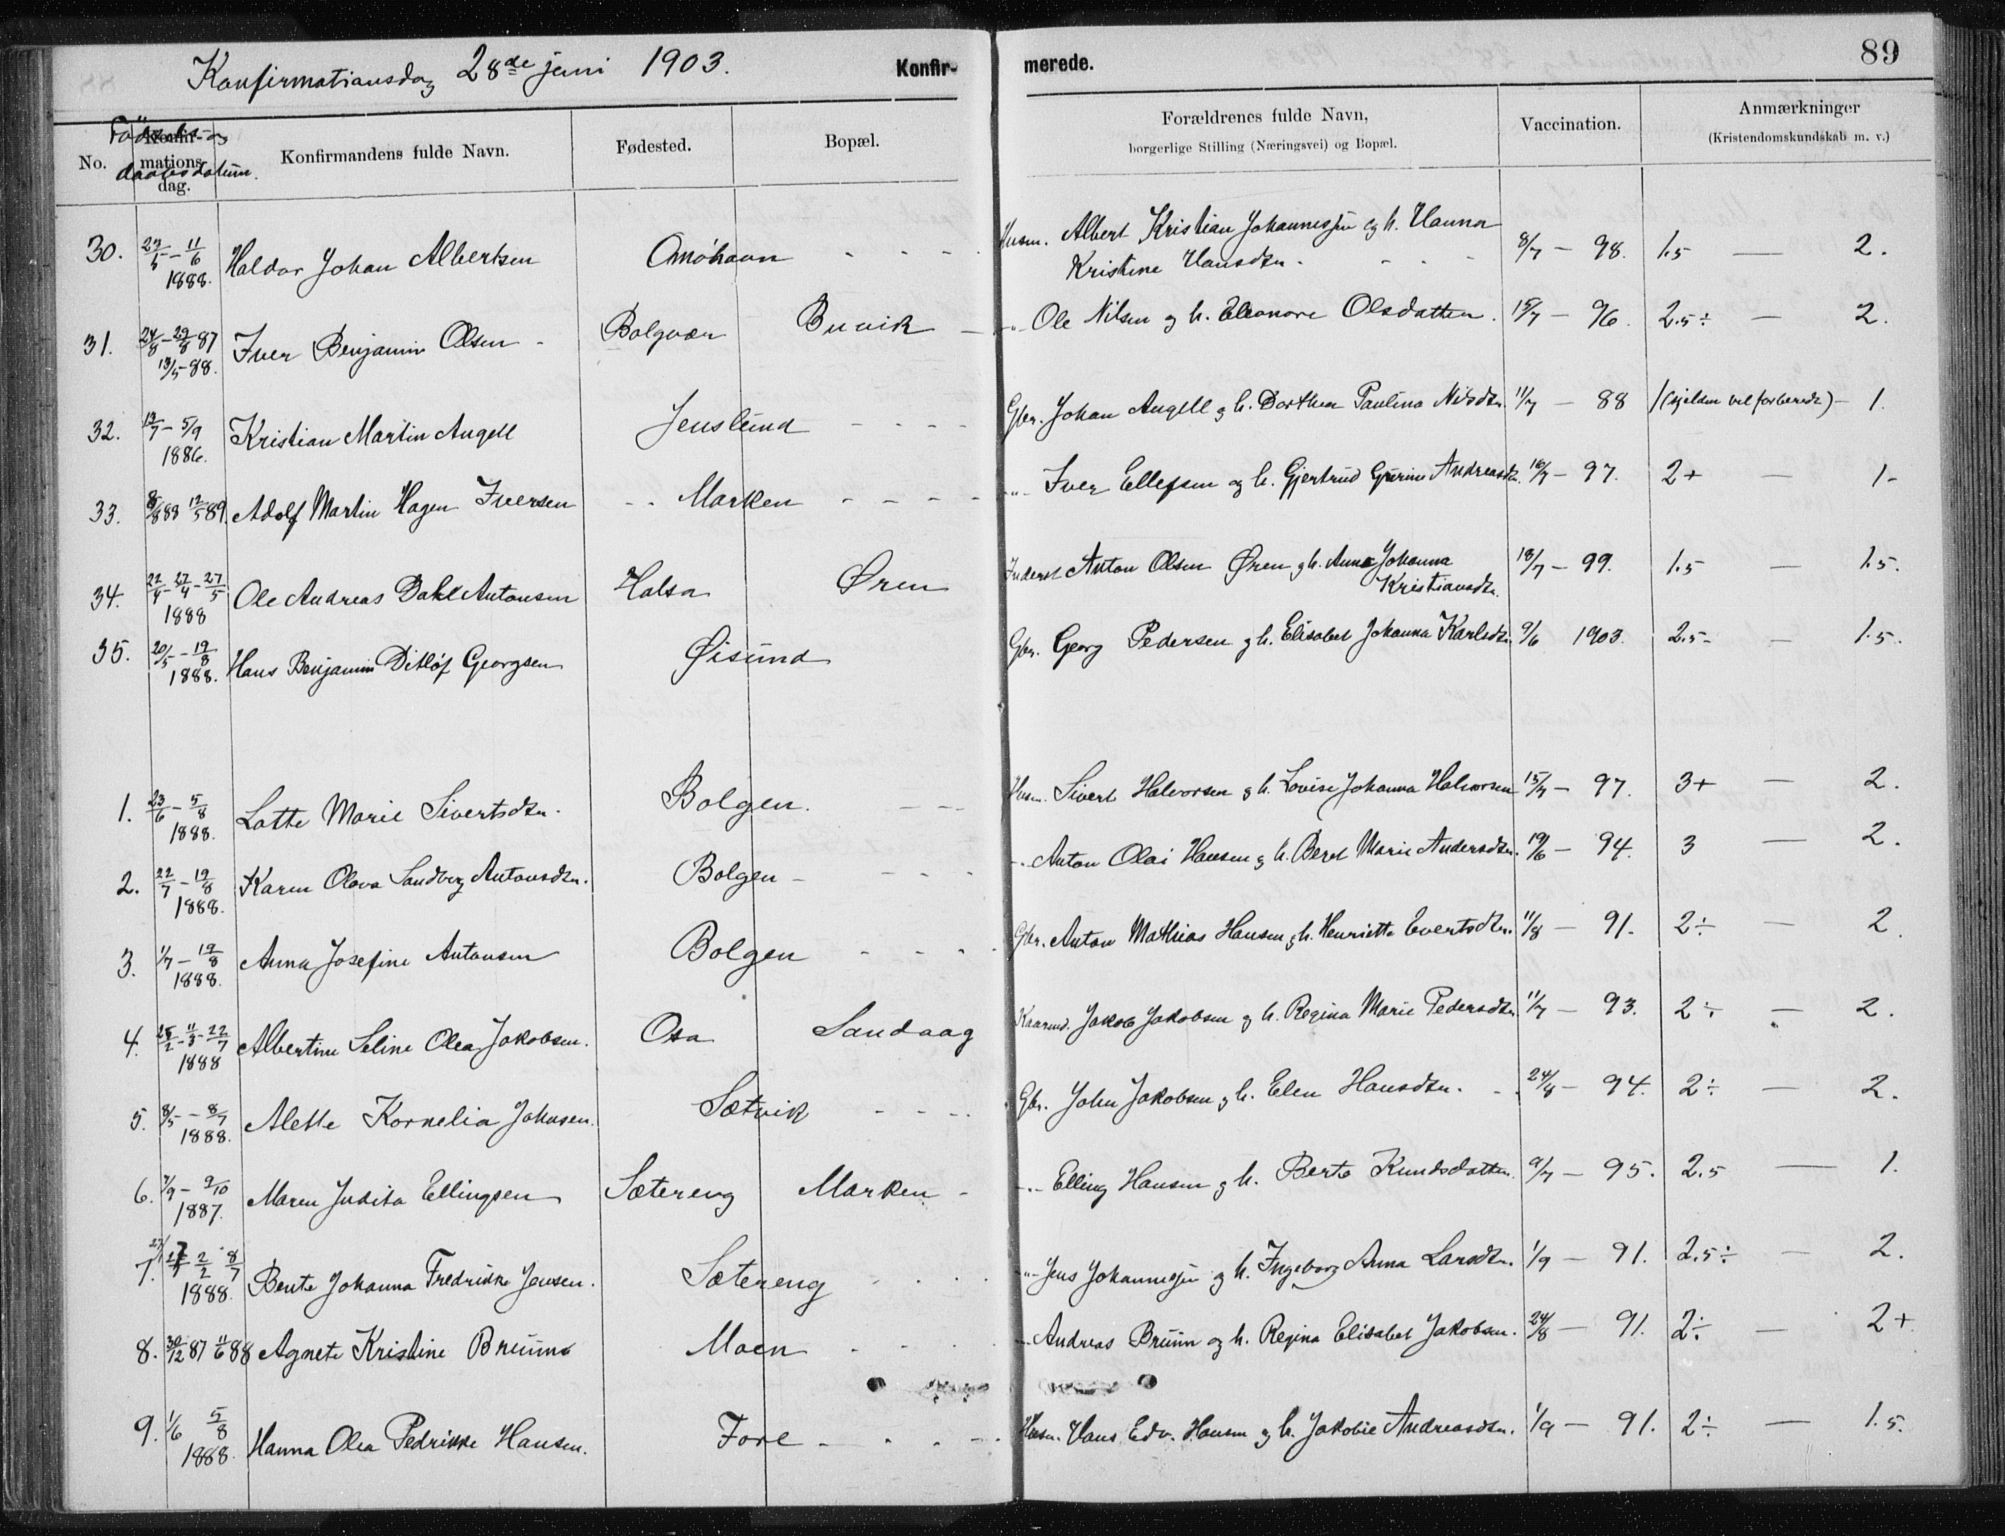 Konfirmationsdag 28de juni 1903.
Konfir- merede.
89
No.
Fødsels- og daabsdatum.
Konfir-
mations-
dag.
Konfirmandens fulde Navn.
Fødested.
Bopæl.
Forældrenes fulde Navn,
borgerlige Stilling (Næringsvei) og Bopæl.
Vaccination.
Anmærkninger
(Kristendomskundskab m. v.)
30. 11/6 1888. Haldor Johan Albertsen Amøhavn - - - Husm. Albert Kristian Johannessen og h. Hanna
Kristine Hansdtr. - - - 8/7 - 98. 1.5 — 2.
31. 24/8 - 29/8 87 13/5-88. Iver Benjamin Olsen - Bolgvær Buvik - -"- Ole Nilsen og h. Eleonore Olsdatter. 15/7 - 96. 2.5÷ — 2.
32. 19/7 - 5/9 1886. Kristian Martin Angell Jenslund - - - - Gbr. Johan Angell og h. Dorthea Paulina Nilsdtr. 11/7 - 88 1 (sjelden vel forberedt) - 1.
33. 8/8 88 12/5 89. Adolf Martin Hagen Iversen - - Marken - - - - -"- Iver Ellefsen og h. Gjertrud Gurine Andreasdtr. 16/7 - 97. 2+ — 1-
34. 22/4 - 27/4 - 27/5 1888 Ole Andreas Dahl Antonsen Halsa Øren Inderst Anton Olsen Øren og h. Anna Johanna
Kristiansdtr. 18/7 - 99. 1.5 — 1.5.
35. 20/5 - 19/8 1888. Hans Benjamin Ditløf Georgsen Øisund Gbr. Georg Pedersen og h. Elisabet Johanna Karlsdtr. 9/6 1903. 2.5- — 1.5.
1. 23/6 - 5/8 1888. Lotte Marie Sivertsdtr. Bolgen. - - - Husm. Sivert Halvorsen og h. Lovise Johanna Halvorsen 15/7 - 97. 3+ — 2.
2. 22/7 - 19/8 1888. Karen Olava Sandberg Antonsdtr. Bolgen - - - - -"- Anton Olai Hansen og h. Beret Marie Andersdtr. 19/6 - 94. 3 — 2.
3. 1/7 - 19/8 1888. Anna Josefine Antonsen Bolgen - - - - Gbr. Anton Mathias Hansen og h. Henriette Evertsdtr. 11/8 - 91. 2÷ — 2
4. 25/2 - 11/3 - 22/7 1888 Albertine Seline Olea Jakobsen. Osa Sandaag Kaarmd. Jakob Jakobsen og h. Regina Marie Pedersdtr. 11/7 - 93. 2÷ — 2.
5. 8/5 - 8/7 1888. Alette Kornelia Johnsen. Sætvik - - - Gbr. John Jakobsen og h. Elen Hansdtr. - - 24/8 - 94. 2÷ — 2.
6. 7/9 - 9/10 1887. Maren Judita Ellingsen Sætereng Marken - -"- Elling Hansen og h. Berta Knudsdatter. 9/7 - 95. 2.5 — 1.
7. 2/2 8/7 1888. Bente Johanna Fredrikke Jensen. Sætereng - - - - -"- Jens Johannessen og h. Ingeborg Anna Larsdtr. 1/9 - 91. 2.5÷ — 2.
8. 30/12 87 11/6 88 Agnete Kristine Bruun Moen - - - - -"- Andreas Bruun og h. Regina Elisabet Jakobsen. 24/8 - 91. 2÷ — 2+
9. 1/6 5/8 1888. Hanna Olea Pedrikke Hansen. Fore - - - - Husm. Hans Edv. Hansen og h. Jakobie Andreasdtr. 1/9 - 91. 2÷ — 1.5.